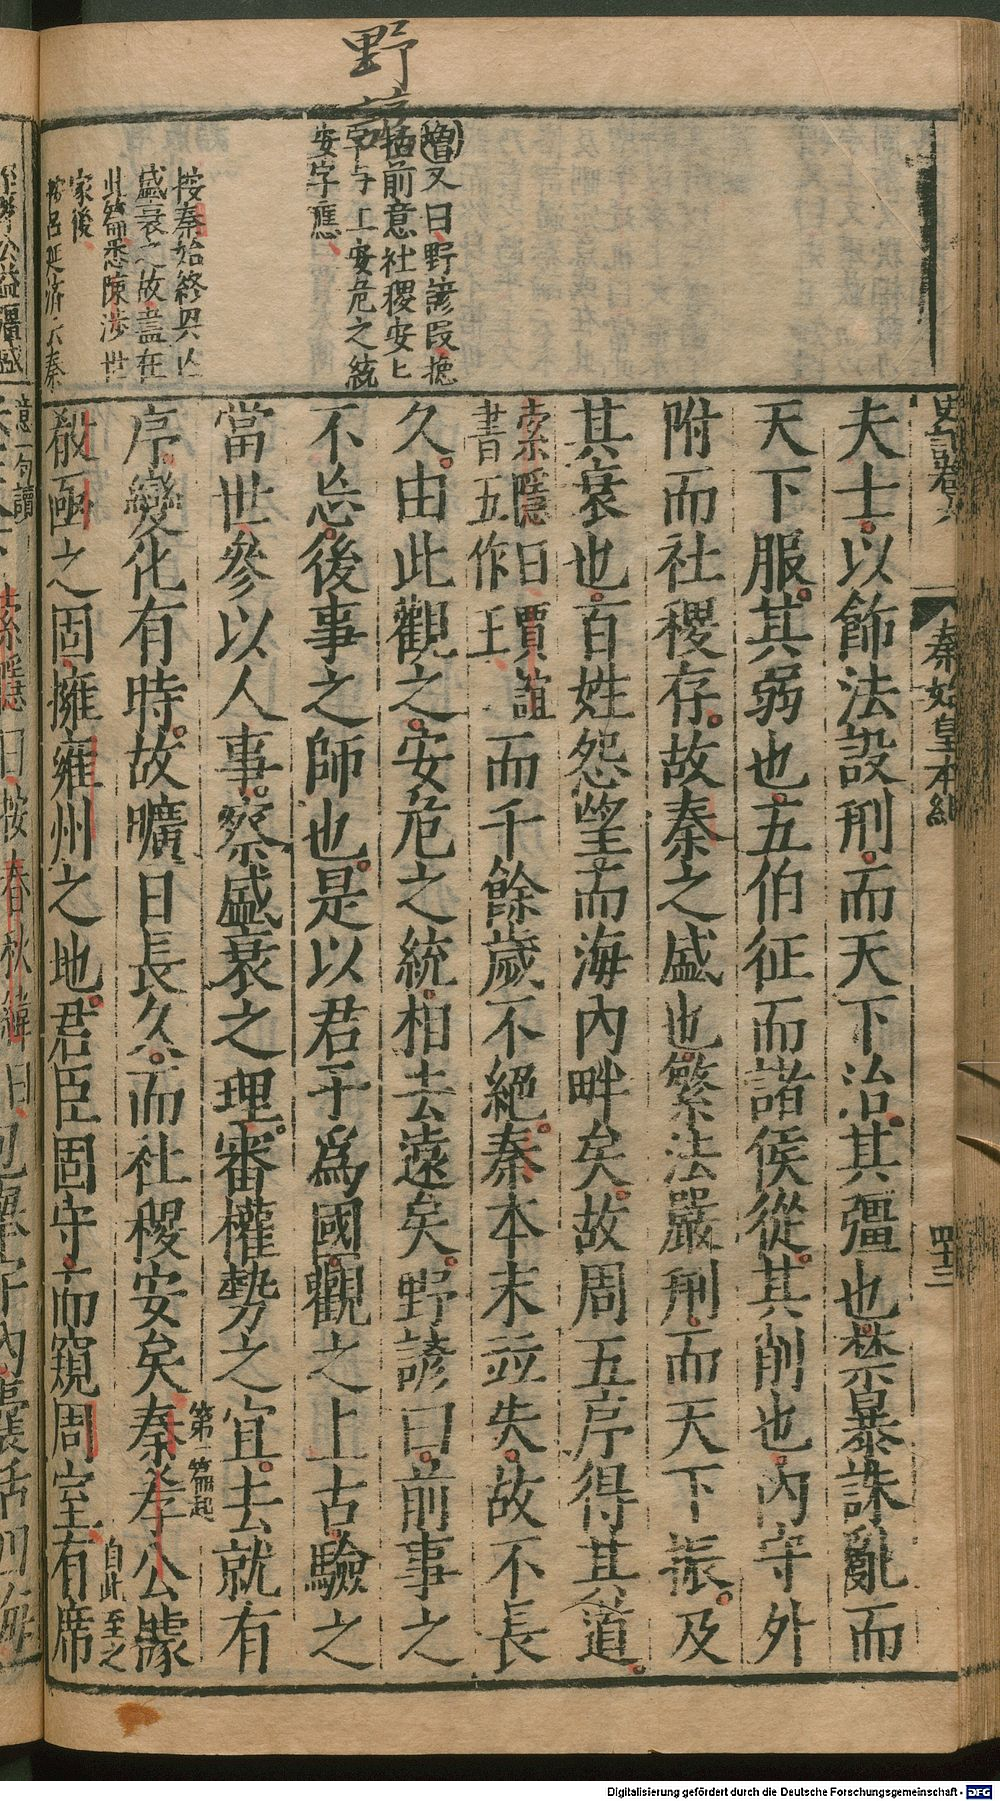 野
增又曰野諺段摠
括前意社稷安上
字与上安危之統
安字應
按秦始終興亡
盛衰之故盡在
此篇悉陳涉世
家後
按呂延濟云秦
史記卷六
秦始皇本紀
四十三
夫士以飾法設刑而天下治其彊也禁暴誅亂而
天下服其弱也五伯征而諸侯從其削也內守外
附而社稷存故秦之盛也繁法嚴刑而天下振及
其衰也百姓怨望而海內畔矣故周五序得其道
索隱曰賈誼
書五作王
而千餘歲不絕秦本末並失故不長
久由此觀之安危之統相去遠矣野諺曰前事之
不忘後事之師也是以君子為國觀之上古驗之
當世參以人事察盛衰之理審權勢之宜去就有
序變化有時故曠日長久而社稷安矣
第一篇起
秦孝公據
自此至之
殽函之固擁雍州之地君臣固守而窺周室有席
Digitalisierung gefördert durch die Deutsche Forschungsgemeinschaft - DFG